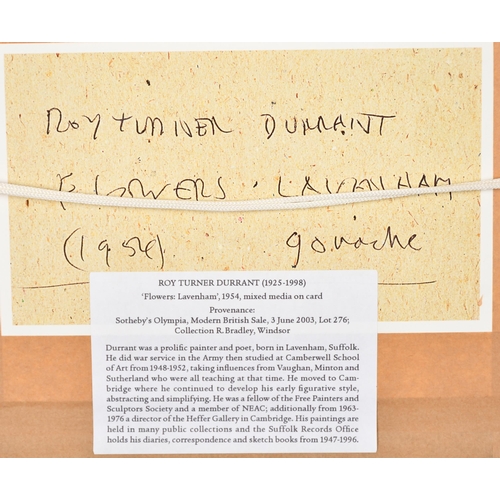 ROY TURNER DURRANT
FLOWERS · LAVENHAM
(1954) gouache
ROY TURNER DURRANT (1925-1998)
'Flowers: Lavenham', 1954, mixed media on card
Provenance:
Sotheby's Olympia, Modern British Sale, 3 June 2003, Lot 276;
Collection R. Bradley, Windsor
Durrant was a prolific painter and poet, born in Lavenham, Suffolk.
He did war service in the Army then studied at Camberwell School
of Art from 1948-1952, taking influences from Vaughan, Minton and
Sutherland who were all teaching at that time. He moved to Cam-
bridge where he continued to develop his early figurative style,
abstracting and simplifying. He was a fellow of the Free Painters and
Sculptors Society and a member of NEAC; additionally from 1963-
1976 a director of the Heffer Gallery in Cambridge. His paintings are
held in many public collections and the Suffolk Records Office
holds his diaries, correspondence and sketch books from 1947-1996.